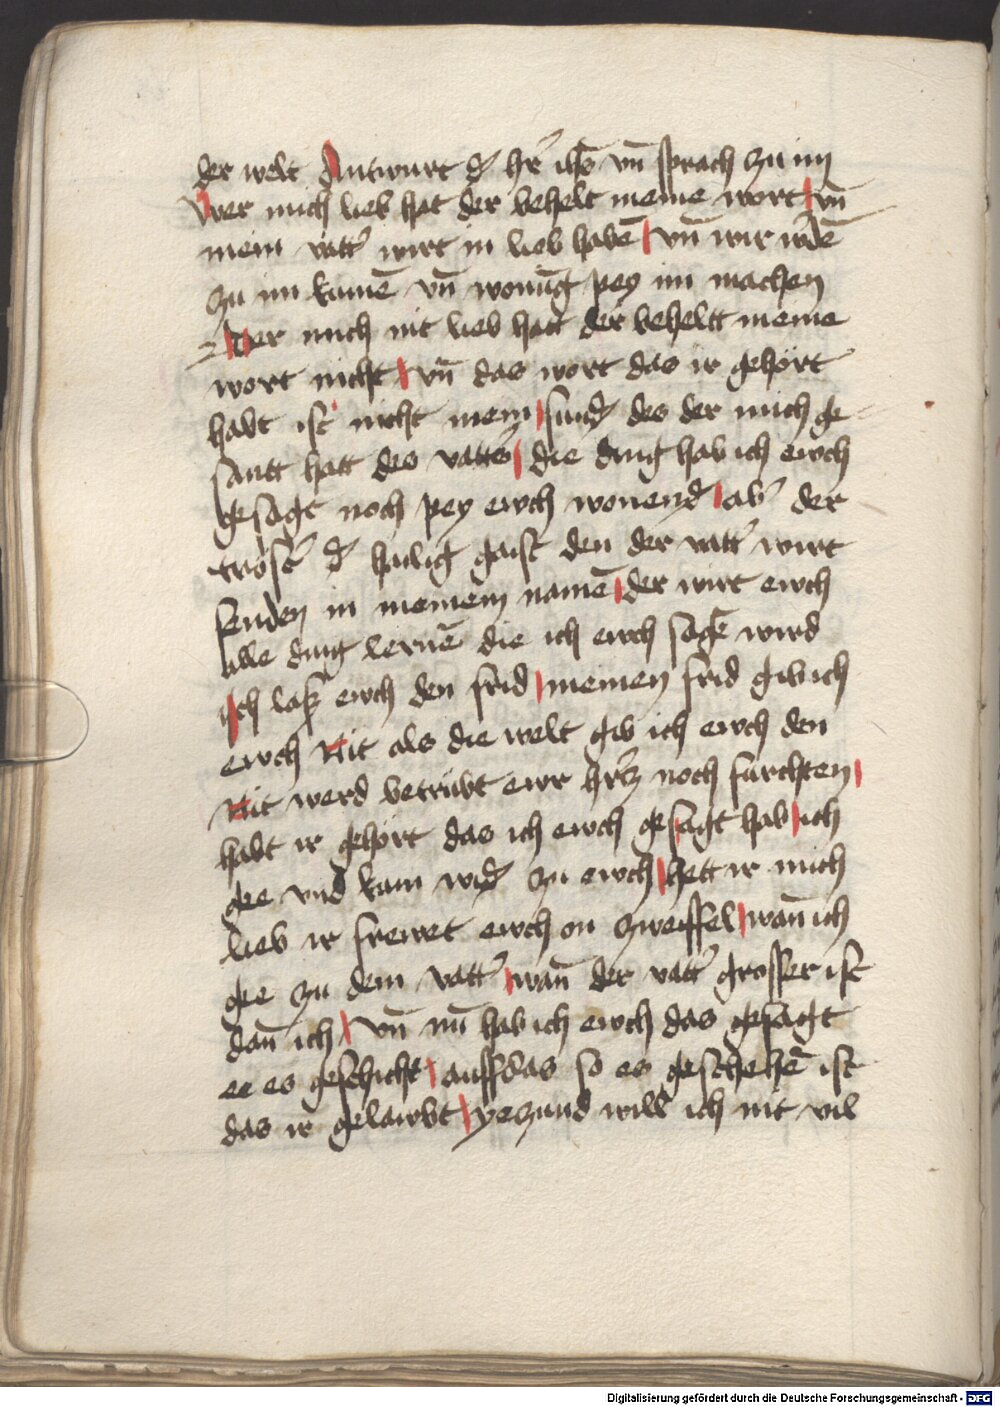 der welt Antwurt d̕ hr̄ ih̄s vn̄ sprach zu im
Wer mich lieb hat der behelt meine wort vn̄
mein vatt̕ wirt in lieb habē vn̄ wir w̕dē
zu im kumē vn̄ wonūg pey im machen
Wer mich nit lieb hatt der beheltt meine
wort nicht vn̄ das wort das ir gehört
habt ist nicht mein sund̕ des der mich ge
santt hatt des vatt̕s die ding hab ich ewch
gesagt noch pey ewch wonend̕ ab̕ der
tröst̕ d̕ hailig gaist den der vatt̕ wirt
senden in meinem namē der wirt ewch
alle ding lernē die ich ewch sagē wird
Ich laß ewch den frid meinen frid gib ich
ewch Nit als die welt gib ich ewch den
Nit werd betrübt ewr hr̄cz noch fürchten
habt ir gehört das ich ewch gesagt hab ich
gee vnd kum wid̕ zu ewch hett ir mich
lieb ir frewet ewch on zweiffel wān ich
gee zu dem vatt̕ wān der vatt̕ grosser ist
dān ich vn̄ nū hab ich ewch das gesagt
ee es geschicht auffdas so es geschehē ist
das ir gelawbt yeczund will ich nit vil
Digitalisierung gefördert durch die Deutsche Forschungsgemeinschaft - DFG